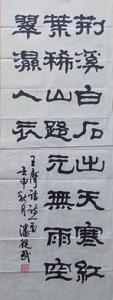 荆溪白石出天寒紅
葉稀山路元無雨空
翠濕人衣
王摩詰詩
壬申秋月潘